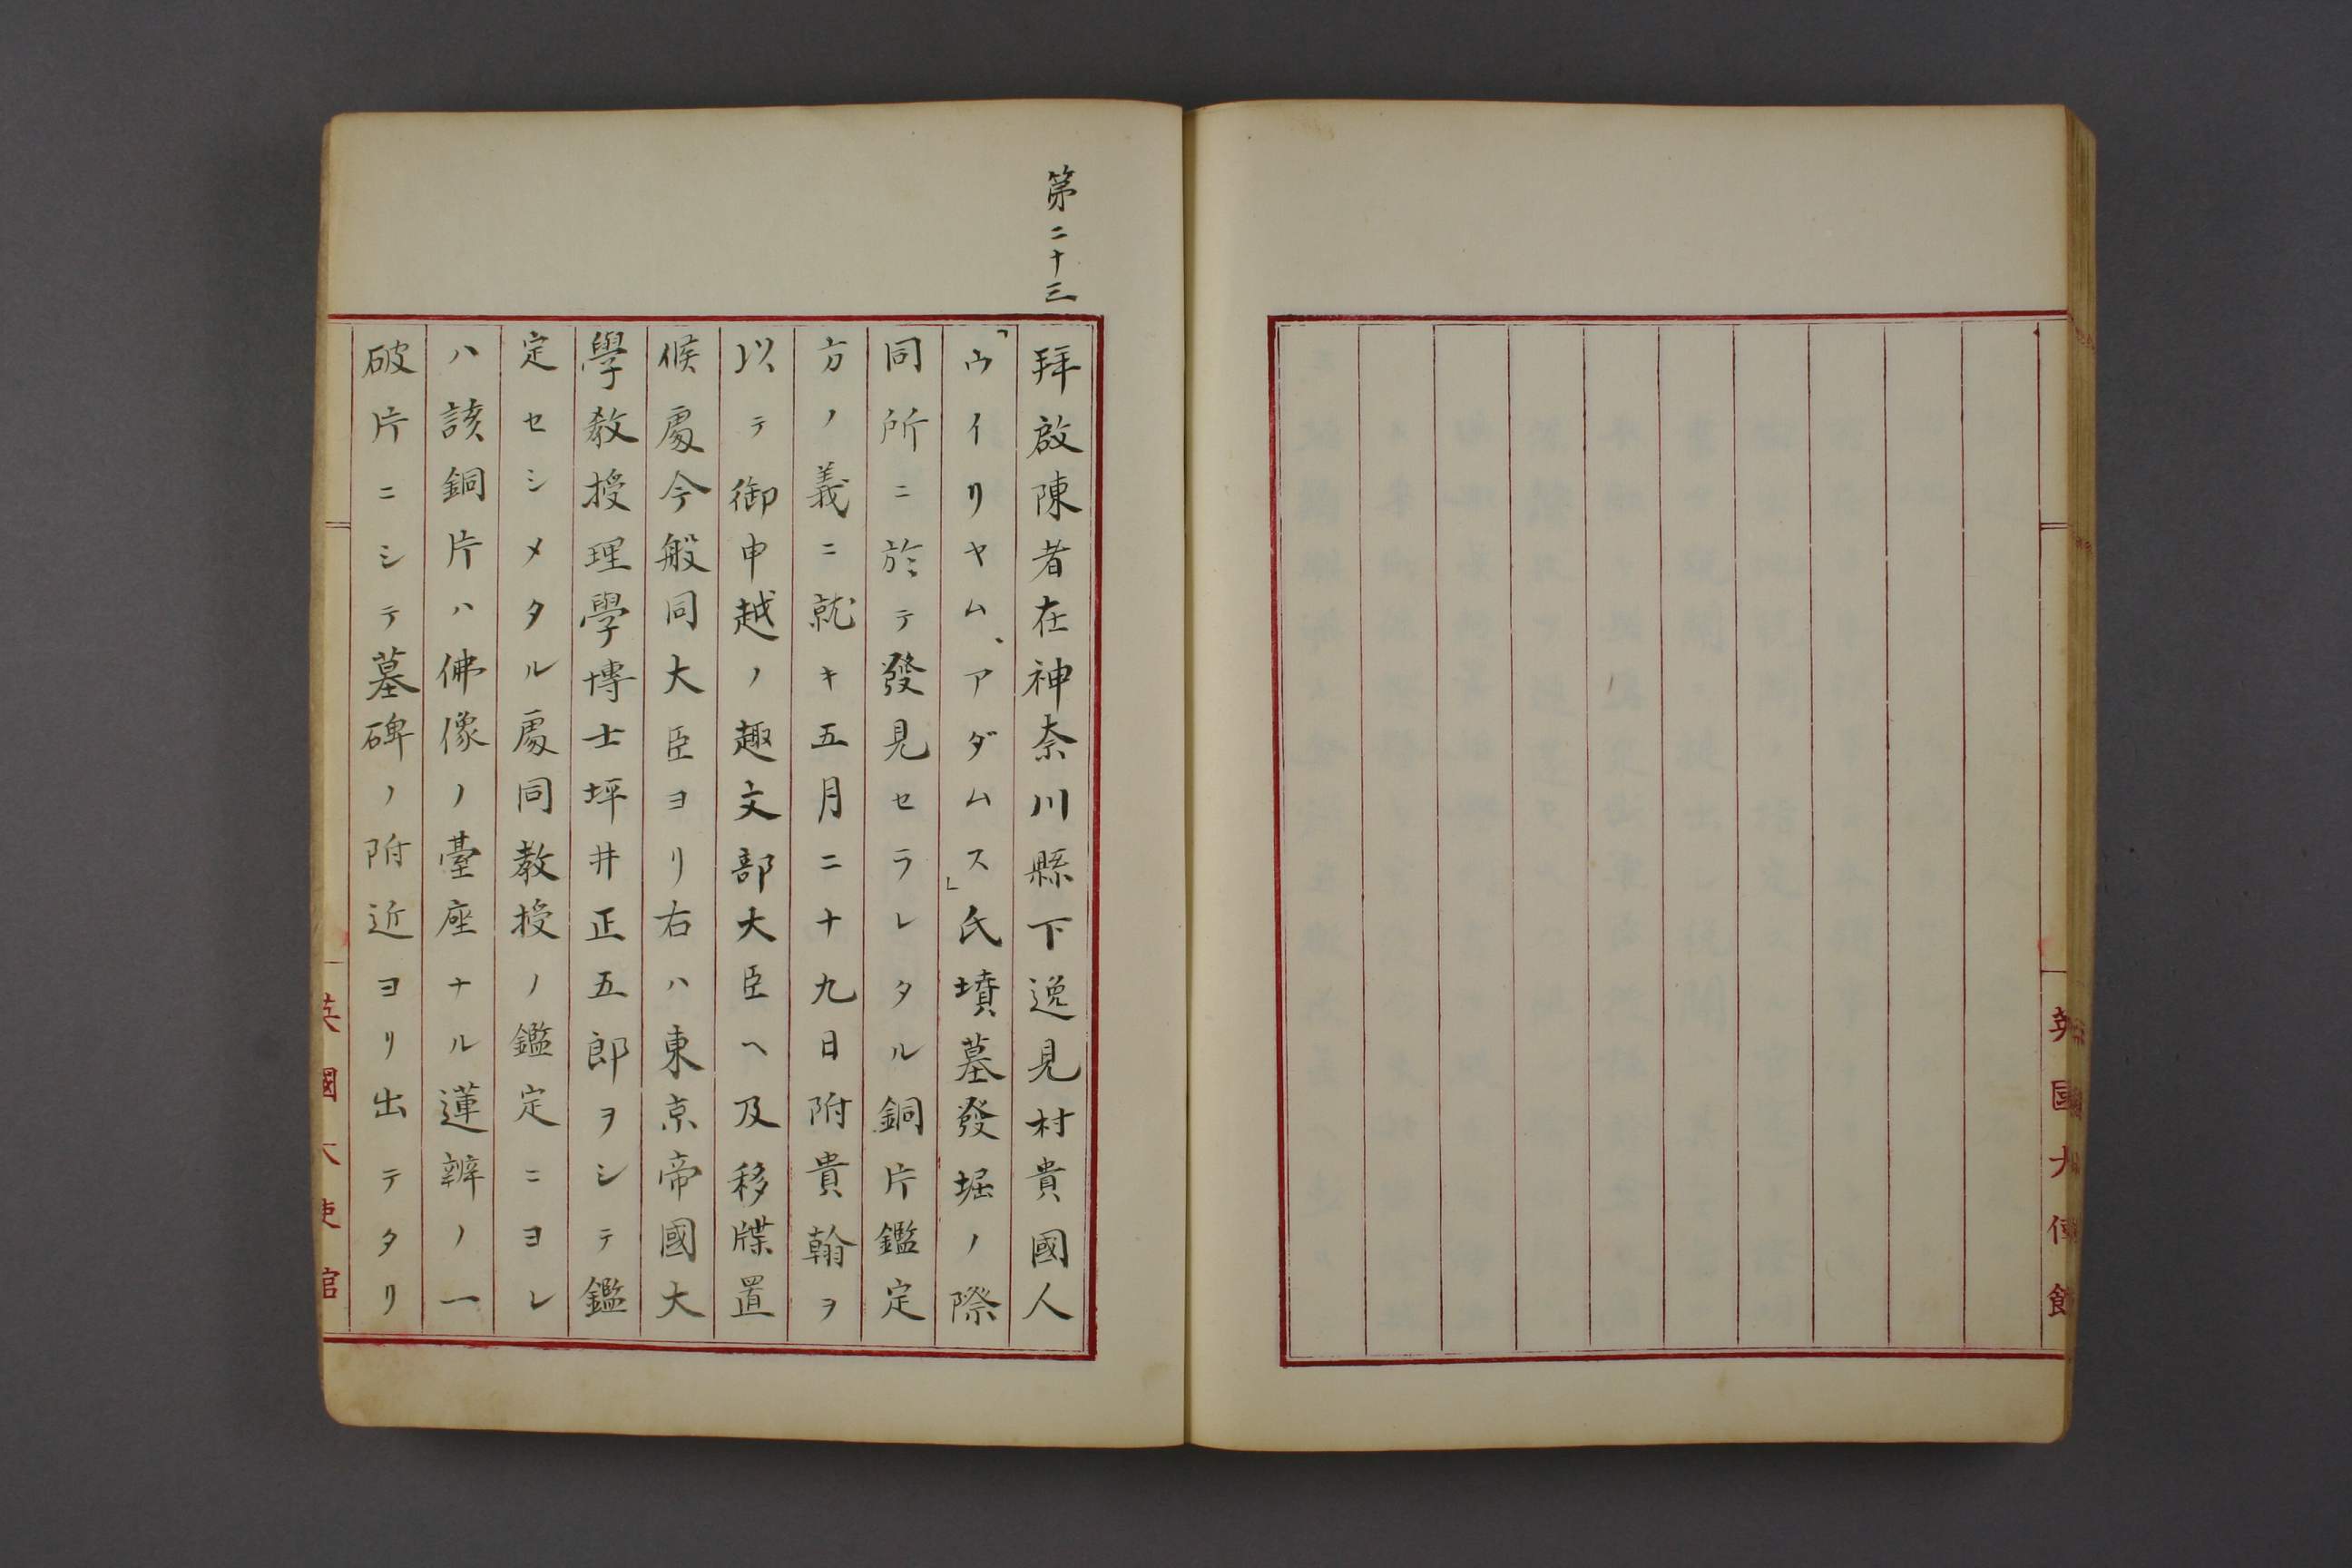 英國大使館
第二十三
拜啟陳者在神奈川縣下逸見村貴國人
「ウイリヤム、アダムス」氏墳墓發堀ノ際
同所ニ於テ發見セラレタル銅片鑑定
方ノ義ニ就キ五月二十九日附貴翰ヲ
以テ御申越ノ趣文部大臣ヘ及移牒置
候處今般同大臣ヨリ右ハ東京帝國大
學教授理學博士坪井正五郎ヲシテ鑑
定セシメタル處同教授ノ鑑定ニヨレ
ハ該銅片ハ佛像ノ臺座ナル蓮辨ノ一
破片ニシテ墓碑ノ附近ヨリ出テタリ
英國大使館